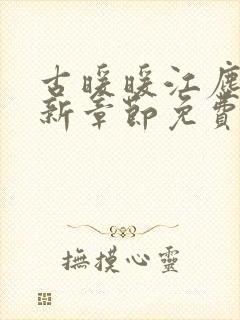 古暖暖江塵
新章節免費
撫摸心靈